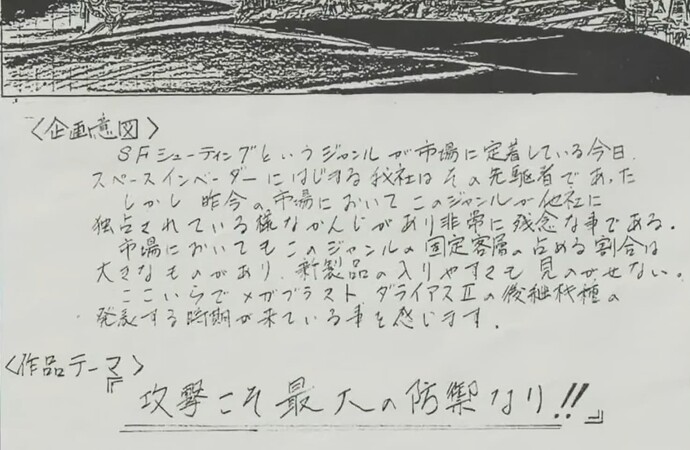 〈企画意図〉
SFシューティングというジャンルが市場に定着している今日、
スペースインベーダーにはじまる我社はその先駆者であった
しかし昨今の市場においてこのジャンルが他社に
独占されている様なかんじがあり非常に残念な事である。
市場においてもこのジャンルの固定客層の占める割合は
大きなものがあり、新製品の入りやすさも見のがせない。
ここいらでメガブラスト、ダライアスⅡの後継機種の
発表する時期が来ている事を感じます。
〈作品テーマ〉
『攻撃こそ最大の防禦なり!!』